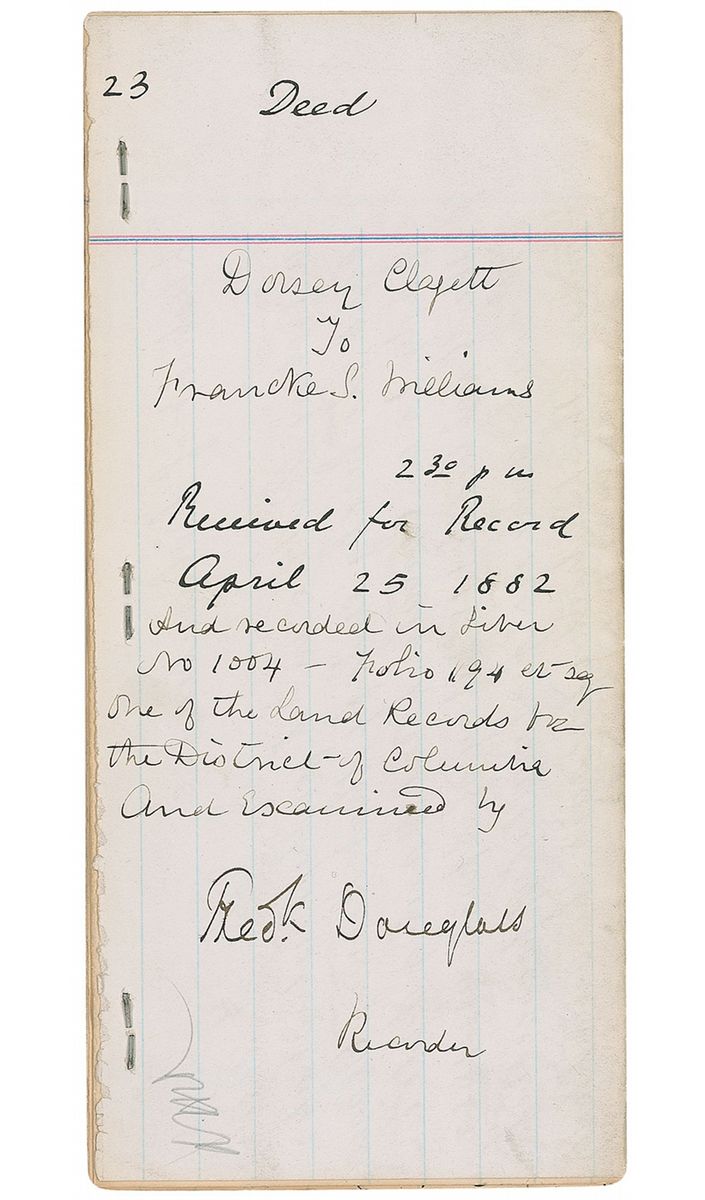 23
Deed
Dorsey Clagett
To
Francke S. Williams
2 30 p m
Received for Record
April 25 1882
And recorded in Liber
No 1004 – Folio 194 et sq
one of the Land Records for
the District of Columbia
And Examined by
Fredk Douglass
Recorder